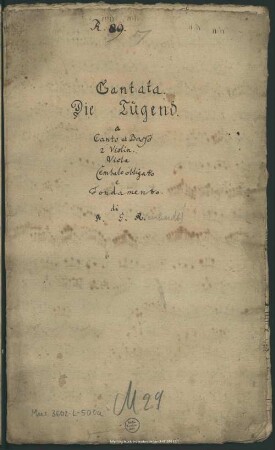 R. 89.
Cantata.
Die Tugend.
a
Canto et Basso
2 Violin.
Viola
Cembalo obligato
e
Fondamento.
di
M 29